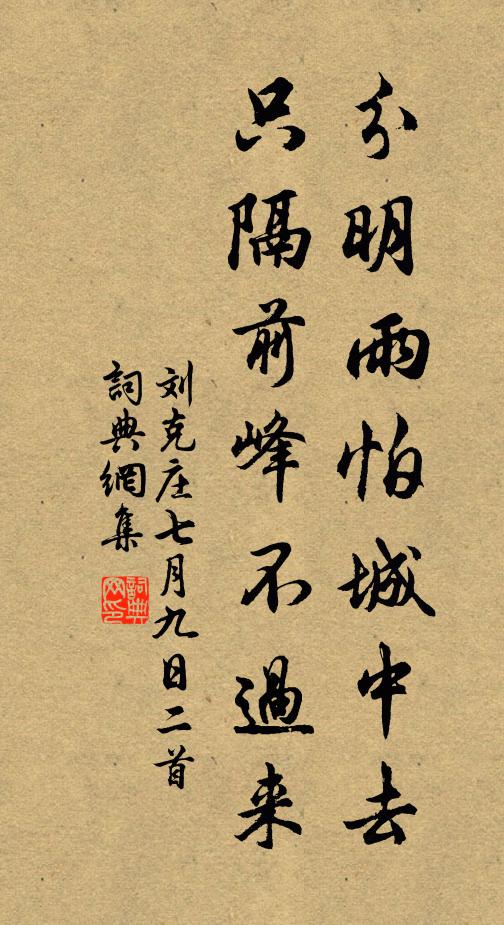 分明雨怕城中去
只隔前峰不過来
刘克庄七月九日二首
詞典網集
詞典网印